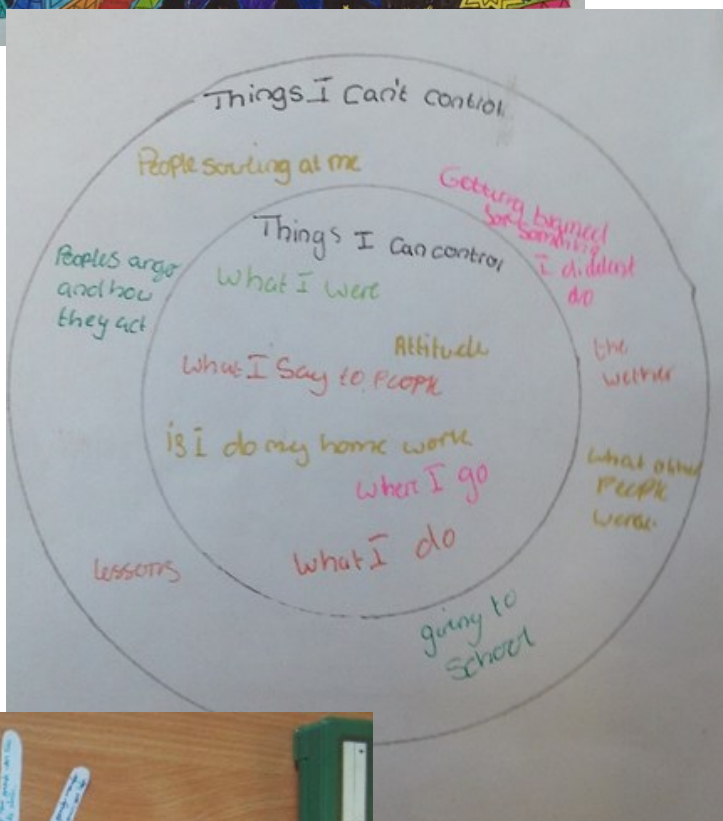 Things I Can't control
People souting at me
Getting blamed
for something
I diddent
do
Peoples anger
and how
they act
the
wether
what other
People
were
going to
School
lessons
Things I Can control
What I were
Attitude
What I Say to People
is I do my home work
where I go
What I do